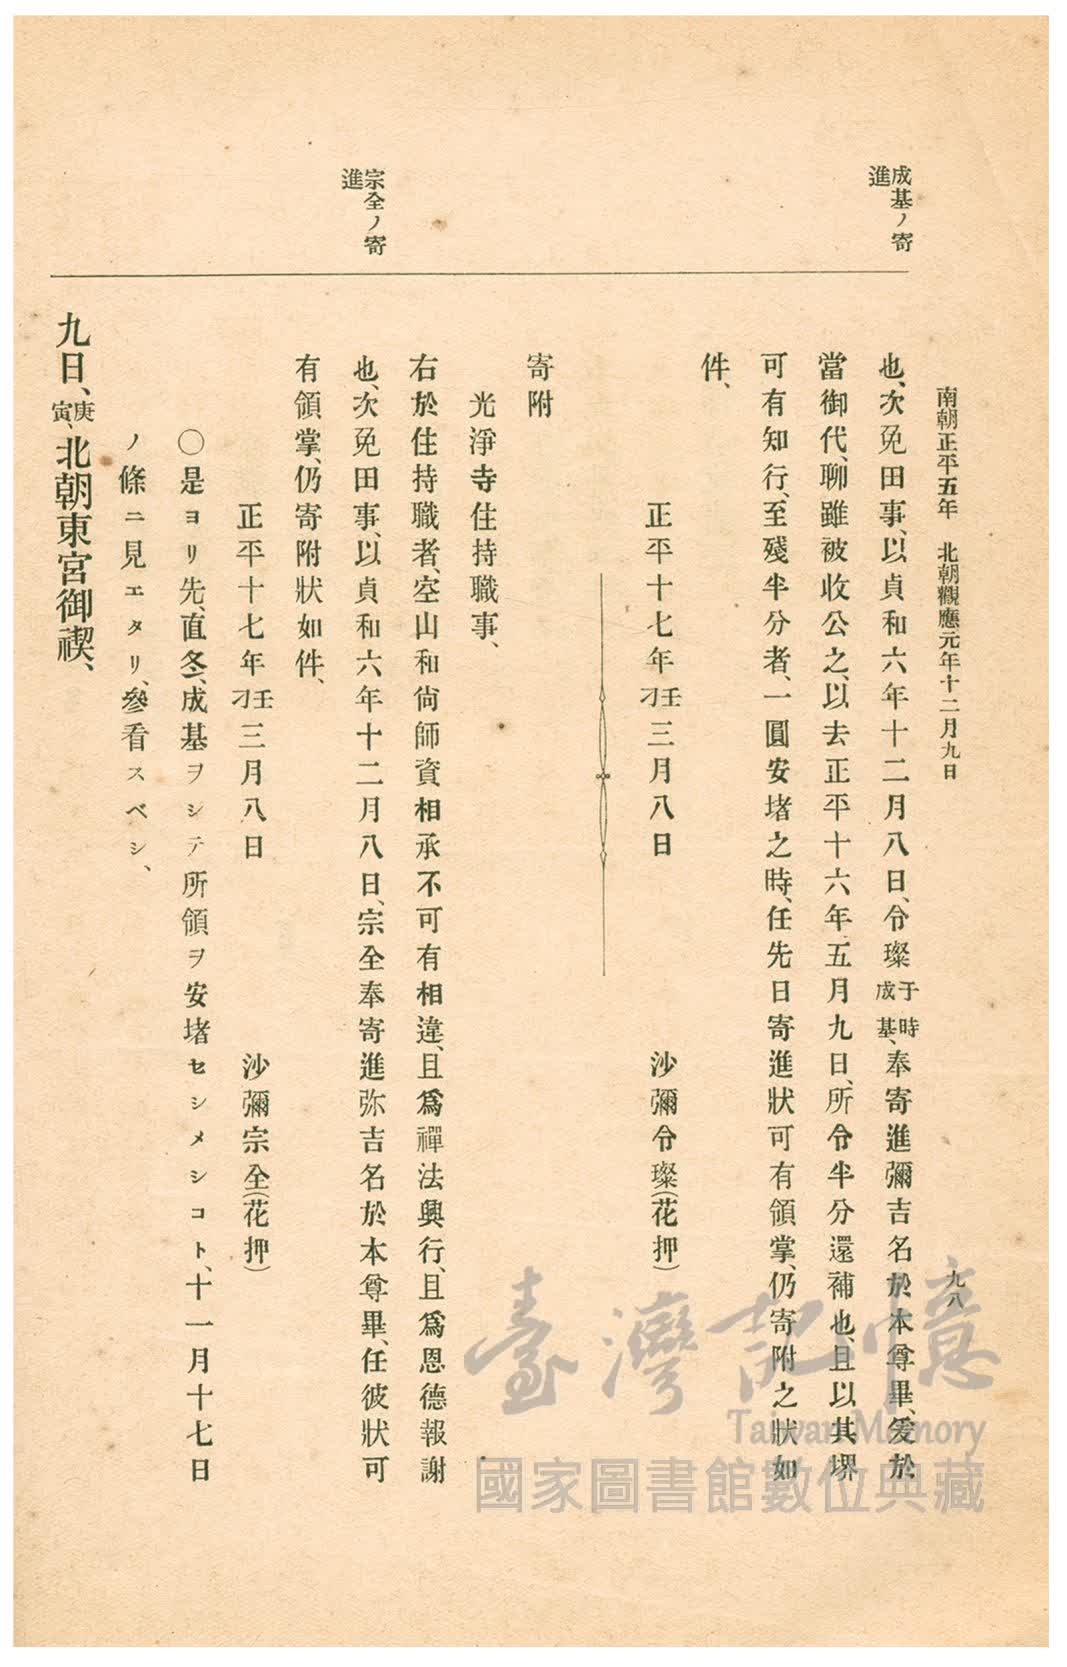 南朝正平五年　北朝觀應元年十二月九日
九八
成基ノ寄
進
也、次免田事、以貞和六年十二月八日、令璨于時成基、奉寄進彌吉名於本尊畢、爰於
當御代、聊雖被收公之、以去正平十六年五月九日、所令半分還補也、且以其堺
可有知行、至殘半分者、一圓安堵之時、任先日寄進狀可有領掌、仍寄附之狀如
件、
正平十七年壬刁三月八日　沙彌令璨(花押)
寄附
光淨寺住持職事、
宗全ノ寄
進
右於住持職者、空山和尙師資相承不可有相違、且爲禪法興行、且爲恩德報謝
也、次免田事、以貞和六年十二月八日、宗全奉寄進弥吉名於本尊畢、任彼狀可
有領掌、仍寄附狀如件、
正平十七年壬刁三月八日　沙彌宗全(花押)
〇是ヨリ先、直冬、成基ヲシテ所領ヲ安堵セシメシコト、十一月十七日
ノ條ニ見エタリ、參看スベシ、
九日、庚寅、北朝東宮御禊、
臺灣記憶
Taiwan Memory
國家圖書館數位典藏